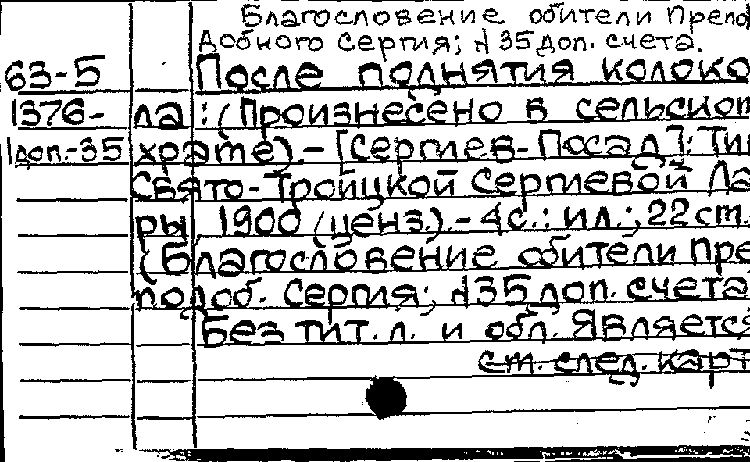 Благословение обители Препо
добного Сергия; № 35 доп. счета.
63-5 После поднятия колоко
1376- ла: (Произнесено в сельском
1доп.-35 храме).- [Сергиев-Посад]: Тип.
Свято-Троицкой Сергиевой Ла
ры, 1900 (ценз.).- 4с.: ил.; 22 ст.
(Благословение обители Пре
подоб. Сергия; № 35 доп. счета
Без тит. л. и обл. Является
см. след. карт